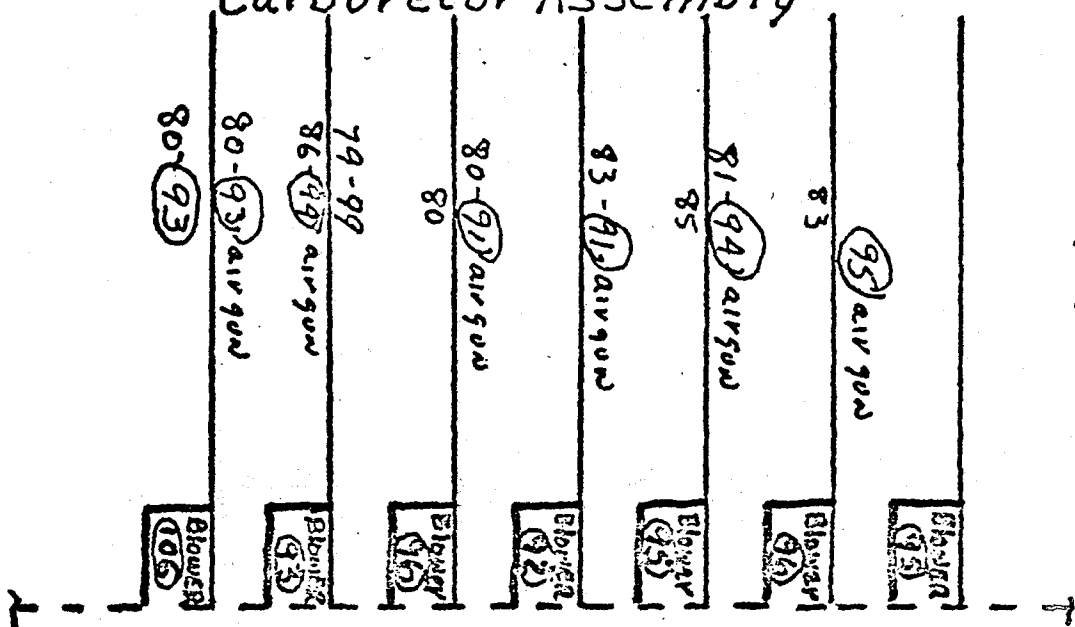 Carburetor Assembly
80-93
80-93 airgun
86-99 airgun
79-99
80
80-91 airgun
83-91 airgun
85
81-94 airgun
83
95 airgun
Blower
106
Blower
93
Blower
96
Blower
92
Blower
95
Blower
96
Blower
95